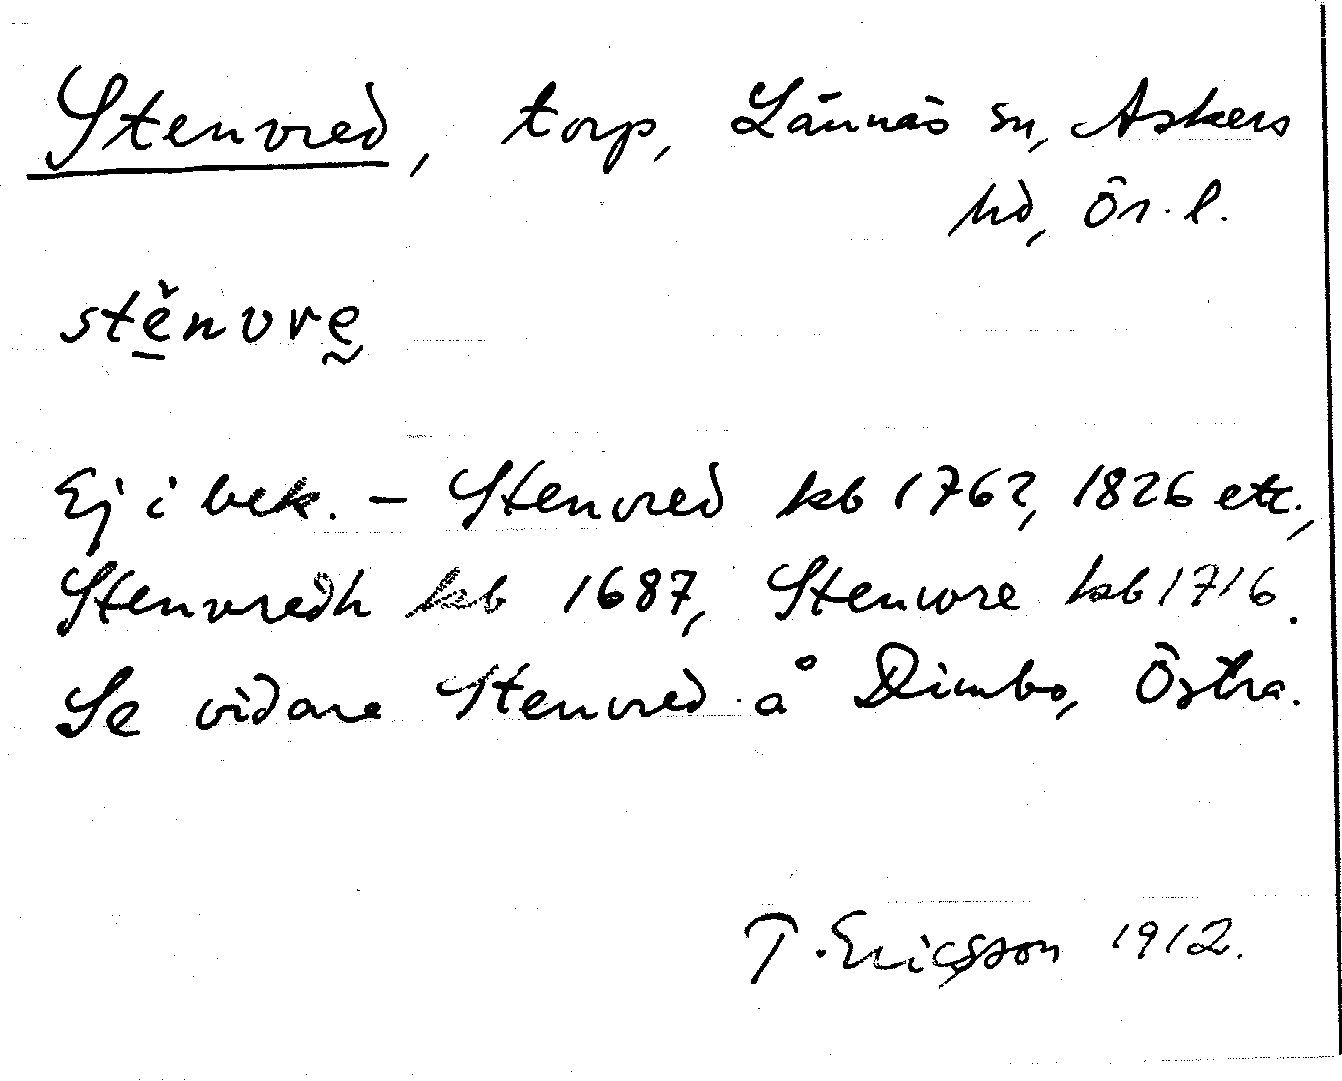 Stenvred, torp, Lännäs sn, Askers
hd, Ör. l.
stĕnvre
Ej i bek. – Stenvred kb 1762, 1826 etc.,
Stenvredh kb 1687, Stenvore kb 1716.
Se vidare Stenvred å Dimbo, Östra.
T. Ericsson 1912.